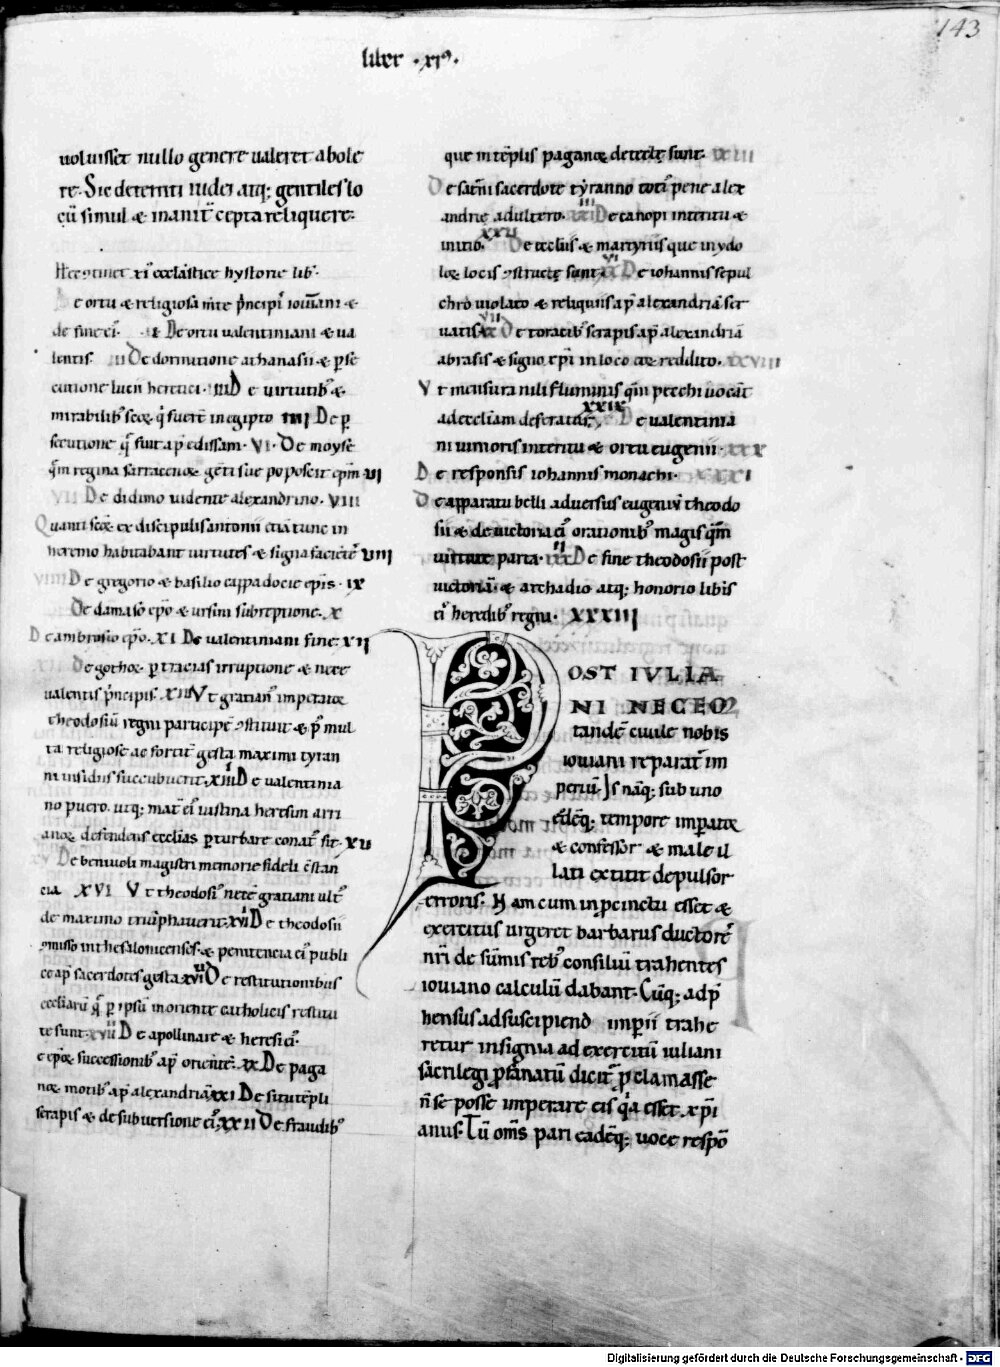 143
liber .xi⁹.
uoluisset nullo genere ualeret abole
re. Sic deterriti iudei atq; gentiles lo
cū simul & inanit̄ cepta reliquere.
Hec ꝯtinet xi⁹ eccl̄astice hystorie lib̄.
De ortu & religiosa m̄te p̄ncipis iouiani &
de fine ei⁹. De ortu ualentiniani & ua
lentis. III De dormitione athanasii & ꝑse
cutione lucii heretici. IIII De uirtutib; &
mirabilib; scōꝝ q̄ fuert̄ in egipto IIII De ꝑ
secutione q̄ fuit ap̄ edissam. VI. De moyse
quē regina sarracenoꝝ genti sue poposcit epm̄ VII
VII De didimo uidente alexandrino. VIII
Quanti scōꝝ ex discipulis antonii etiā tunc in
heremo habitabant uirtutes & signa faciētes VIIII
VIIII De gregorio & basilio cappadocie epīs. IX
De damaso epō & ursini subreptione. X
De ambrosio epō. XI De ualentiniani fine. XII
De gothoꝝ ꝑ tracias irruptione & nece
ualentis p̄ncipis. XIII Vt gratian⁹ imperatoꝝ
theodosiū regni participē ꝯstituit & p⁹ mul
ta religiose ac fortit̄ gesta maximi tyran
ni insidiis succubuerit. XIIII De ualentinia
no puero. utq; mat̄ ei⁹ iustina heresim arri
anoꝝ defendens ecclias ꝑturbare conat⁹ sit. XV
XV De beniuoli magistri memorie fideli c̄stan
cia XVI Vt theodosi⁹ nece gratiani ult⁹
de maximo triūphauerit. XVII De theodosii
ꝯmisso in thesalonicenses. & penitencia ei⁹ publi
ce ap̄ sacerdotes gesta. XVIII De restitutionibus
eccliarū q̄ ꝑ ipsū in oriente catholicis restitu
te sunt. XVIII De apollinare & heresi ei⁹.
& epōꝝ successionib; ap̄ oriente. XX De paga
noꝝ motib; ap̄ alexandriā XXI De situ tēpli
serapis & de subuersione ei⁹. XXII De fraudib;
que in tēplis paganoꝝ detectę sunt. XXIII
De saturni sacerdote tyranno toti⁹ pene alex
andrie adultero. De canopi interitu &
initio. XXV De eccliis & martyriis que in ydo
loꝝ locis ꝯstructę sunt. De iohannis sepul
chro uiolato & reliquiis ap̄ alexandriā ser
uatis. De toratib; serapis ap̄ alexandriā
abrasis & signo xp̄i in loco eoꝝ reddito. XXVIII
Vt mensura nili fluminis quā pecchi uocāt
ad eccliam deferatur. XXIX De ualentinia
ni iunioris interitu & ortu eugenii. XXX
De responsis iohannis monachi. XXXI
De apparatu belli aduersus eugeniū theodo
sii & de uictoria ei⁹ orationib; magis quā
uirtute parta. De fine theodosii post
uictoriā & archadio atq; honorio liberis
ei⁹ heredib; regni. XXXIII
POST IVLIA
NI NECEM
tandē ciuile nobis
iouiani reparat̄ im
periū. Is nāq; sub uno
eodēq; tempore imperatoꝝ
& confessor & male il
lati extitit depulsor
erroris. Nam cum in ꝓcinctu esset &
exercitus urgeret barbarus ductores
nr̄i de sūmis reb; consiliū trahentes
iouiano calculū dabant. Cūq; adp̄
hensus ad suscipiend imperii trahe
retur insignia ad exercitū iuliani
sacrilegi ꝓfanatū dicit⁹ ꝓclamasse
n̄ se posse imperare eis q̄a esset xp̄i
anus. Tū om̄s pari eadēq; uoce respō
Digitalisierung gefördert durch die Deutsche Forschungsgemeinschaft - DFG